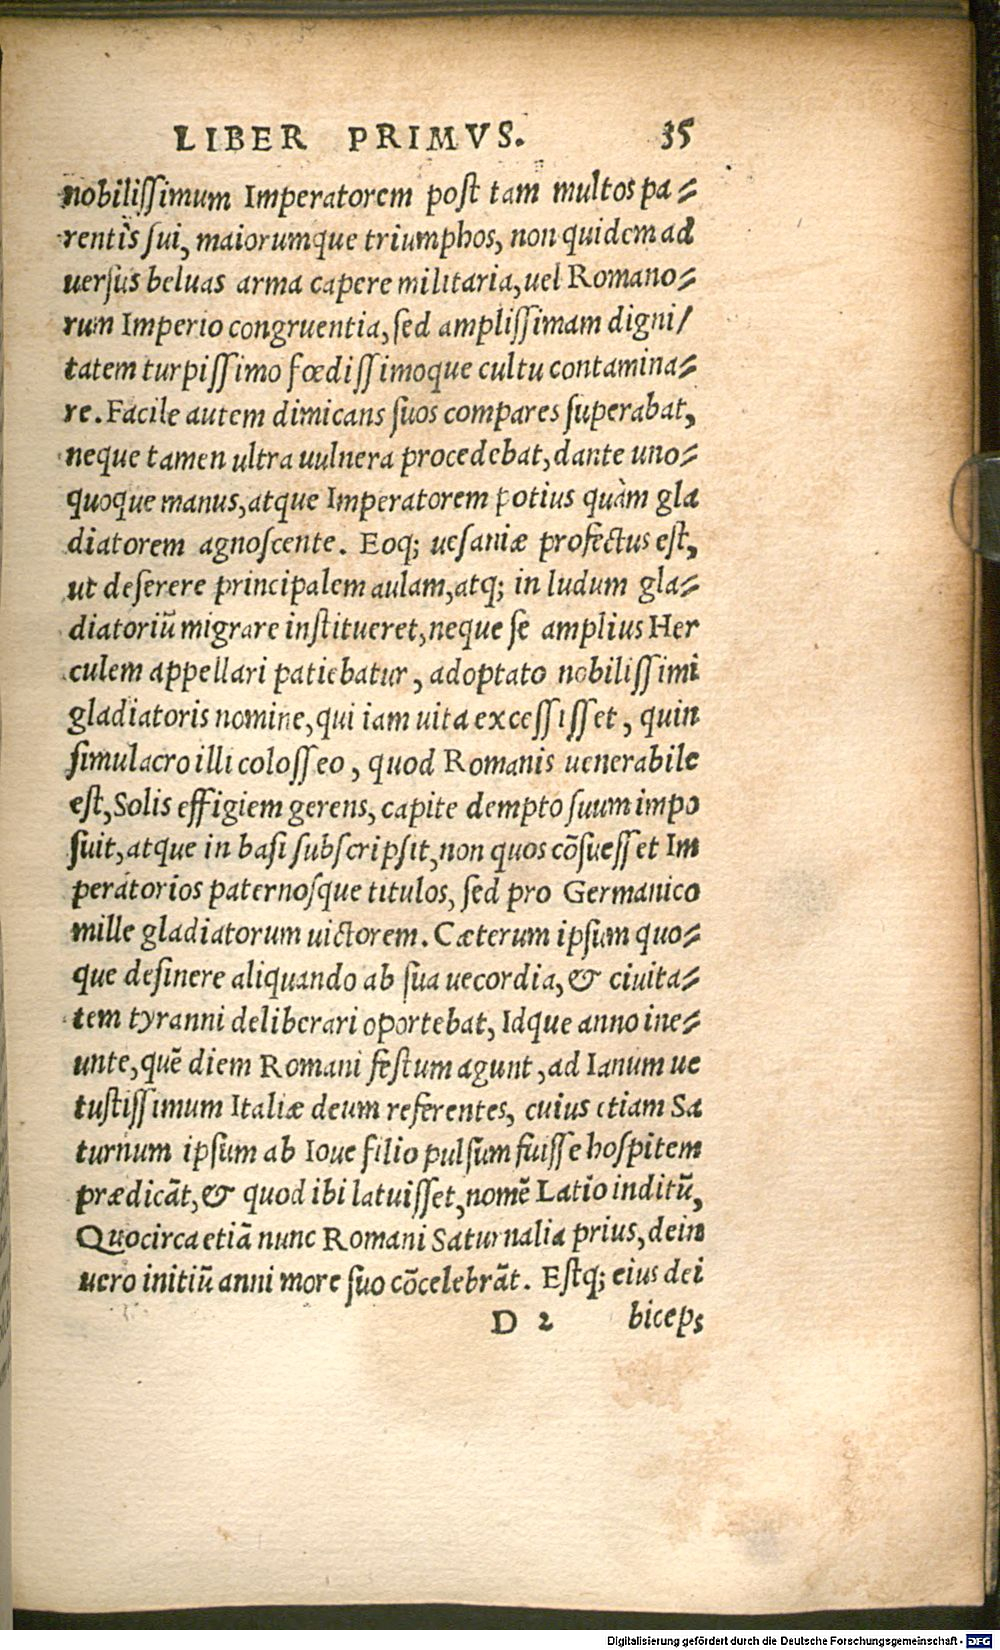 LIBER PRIMVS. 35
nobiliſſimum Imperatorem poſt tam multos pa⸗
rentis ſui, maiorumque triumphos, non quidem ad
uerſus beluas arma capere militaria, uel Romano⸗
rum Imperio congruentia, ſed ampliſſimam digni/
tatem turpiſſimo fœdiſſimoque cultu contamina⸗
re. Facile autem dimicans ſuos compares ſuperabat,
neque tamen ultra uulnera procedebat, dante uno⸗
quoque manus, atque Imperatorem potius quàm gla
diatorem agnoſcente. Eoq; ueſaniæ profectus eſt,
ut deſerere principalem aulam, atq; in ludum gla⸗
diatoriū migrare inſtitueret, neque ſe amplius Her
culem appellari patiebatur, adoptato nobiliſſimi
gladiatoris nomine, qui iam uita exceſſiſſet, quin
ſimulacro illi coloſſeo, quod Romanis uenerabile
eſt, Solis effigiem gerens, capite dempto ſuum impo
ſuit, atque in baſi ſubſcripſit, non quos cōſueſſet Im
peratorios paternoſque titulos, ſed pro Germanico
mille gladiatorum uictorem. Cæterum ipſum quo⸗
que deſinere aliquando ab ſua uecordia, & ciuita⸗
tem tyranni deliberari oportebat, Idque anno ine⸗
unte, quē diem Romani feſtum agunt, ad Ianum ue
tuſtiſſimum Italiæ deum referentes, cuius etiam Sa
turnum ipſum ab Ioue filio pulſum fuiſſe hoſpitem
prædicāt, & quod ibi latuiſſet, nomē Latio inditū,
Quocirca etiā nunc Romani Saturnalia prius, dein
uero initiū anni more ſuo cōcelebrāt. Eſtq; eius dei
D 2 biceps
Digitalisierung gefördert durch die Deutsche Forschungsgemeinschaft - DFG